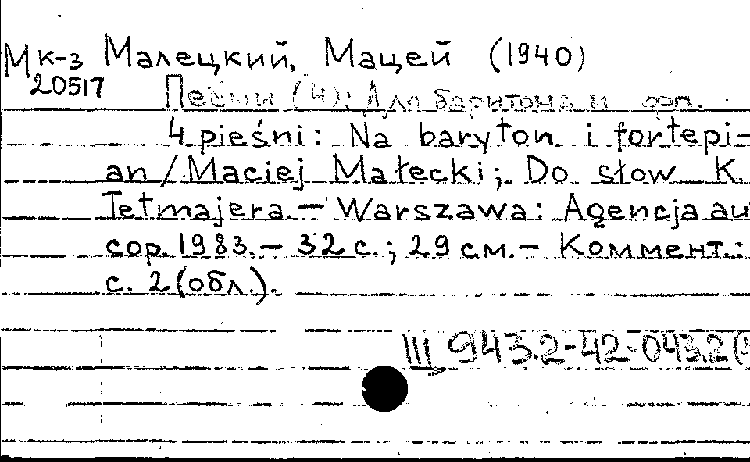 Мк-з Малецкий, Мацей (1940)
20517
Песни (4): Для баритона и фп.
4 pieśni: Na baryton i fortepi-
an / Maciej Małecki; Do słow K.
Tetmajera. – Warszawa: Agencja au
cop. 1983. – 32 с.; 29 см. – Коммент.:
с. 2 (обл.).
III 943.2-42-043.2(